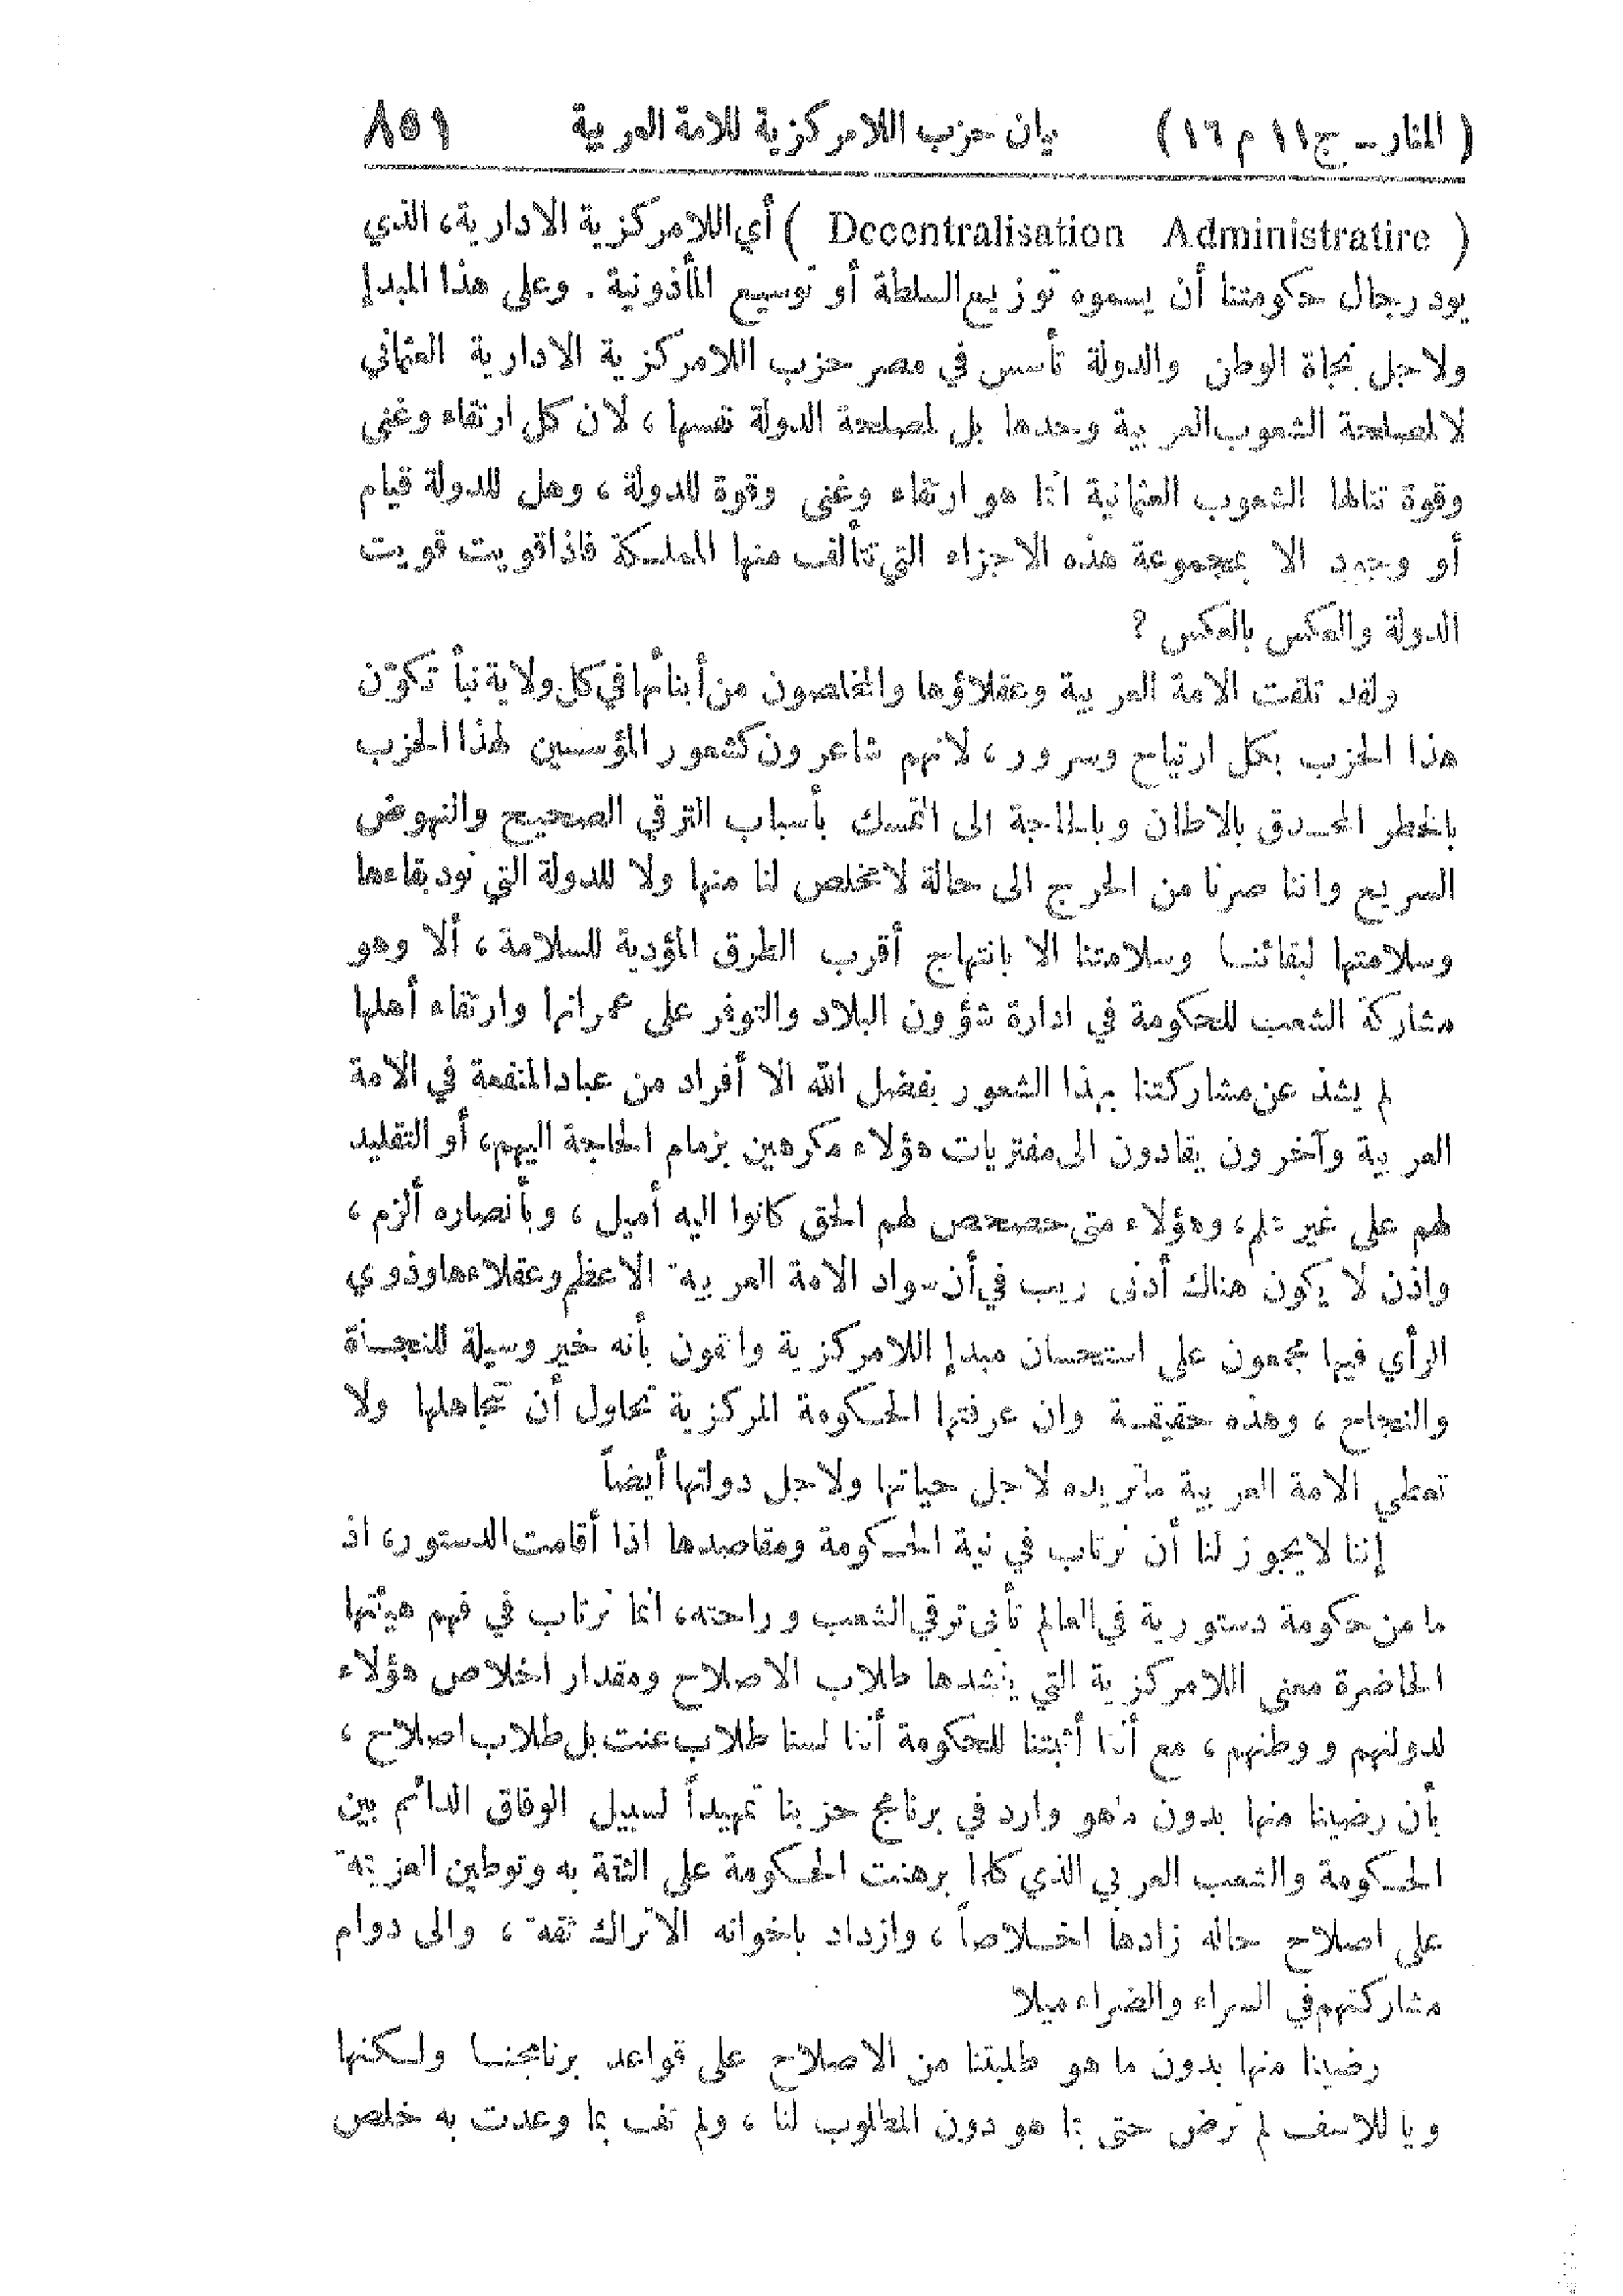 ( المنار ــ ج ١١ م ١٦ ) بيان حزب اللامركزية للامة العربية ٨٥١
( Decentralisation Administratire ) أي اللامركزية الادارية، الذي
يود رجال حكومتنا أن يسموه توزيع السلطة أو توسيع المأذونية . وعلى هذا المبدإ
ولاجل نجاة الوطن والدولة تأسس في مصر حزب اللامركزية الادارية العثماني
لا لمصلحة الشعوب العربية وحدها بل لمصلحة الدولة نفسها ، لان كل ارتقاء وغنى
وقوة تنالها الشعوب العثمانية انما هو ارتقاء وغنى وقوة للدولة ، وهل للدولة قيام
أو وجود الا بمجموعة هذه الاجزاء التي تتألف منها المملكة فاذا قويت قويت
الدولة والعكس بالعكس ؟
ولقد تلقت الامة العربية وعقلاؤها والمخلصون من أبنائها في كل ولاية نبأ تكوّن
هذا الحزب بكل ارتياح وسرور ، لانهم شاعرون كشعور المؤسسين لهذا الحزب
بالخطر المحدق بالاطان وبالحاجة الى التمسك بأسباب الترقي الصحيح والنهوض
السريع واننا صرنا من الحرج الى حالة لا مخلص لنا منها ولا للدولة التي نود بقاءها
وسلامتها لبقائنا وسلامتنا الا بانتهاج أقرب الطرق المؤدية للسلامة ، ألا وهو
مشاركة الشعب للحكومة في ادارة شؤون البلاد والتوفر على عمرانها وارتقاء أهلها
لم يشذ عن مشاركتنا بهذا الشعور بفضل الله الا أفراد من عباد المنفعة في الامة
العربية وآخرون يقادون الى مفتريات هؤلاء مكرهين بزمام الحاجة اليهم، أو التقليد
لهم على غير علم، وهؤلاء متى حصحص لهم الحق كانوا اليه أميل ، وبأنصاره ألزم ،
واذن لا يكون هناك أدنى ريب في أن سواد الامة العربية الاعظم وعقلاءها وذوي
الرأي فيها مجمعون على استحسان مبدإ اللامركزية واثقون بأنه خير وسيلة للنجاة
والنجاح ، وهذه حقيقة وان عرفتها الحكومة المركزية تحاول أن تتجاهلها ولا
تعطي الامة العربية ما تريده لاجل حياتها ولاجل دولتها أيضاً
إننا لا يجوز لنا أن نرتاب في نية الحكومة ومقاصدها اذا أقامت الدستور، اذ
ما من حكومة دستورية في العالم تأبى ترقي الشعب وراحته، انما نرتاب في فهم هيئتها
الحاضرة معنى اللامركزية التي ينشدها طلاب الاصلاح ومقدار اخلاص هؤلاء
لدولتهم ووطنهم ، مع أننا أثبتنا للحكومة أننا لسنا طلاب عنت بل طلاب اصلاح ،
بأن رضينا منها بدون ما هو وارد في برنامج حزبنا تمهيداً لسبيل الوفاق الدائم بين
الحكومة والشعب العربي الذي كلما برهنت الحكومة على الثقة به وتوطين العزيمة
على اصلاح حاله زادها اخلاصاً ، وازداد باخوانه الاتراك ثقة ، والى دوام
مشاركتهم في السراء والضراء ميلا
رضينا منها بدون ما هو طلبتنا من الاصلاح على قواعد برنامجنا ولكنها
ويا للاسف لم ترض حتى بما هو دون المطلوب لنا ، ولم تف بما وعدت به خلص